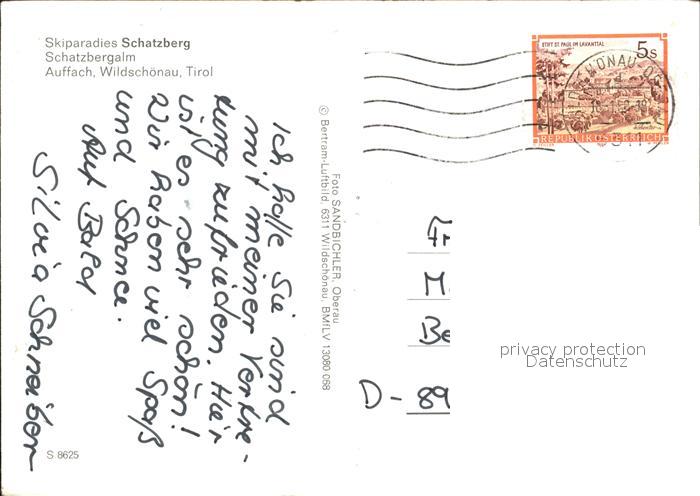 Skiparadies Schatzberg
Schatzbergalm
Auffach, Wildschönau, Tirol
Ich hoffe Sie sind
mit meiner Vertre-
tung zufrieden. Hier
ist es sehr schön!
Wir haben viel Spaß
und Schnee.
Auf Bald
Silvia Schneider
S 8625
Foto SANDBICHLER, Oberau
© Bertram-Luftbild, 6311 Wildschönau, BMfLV 13080/068
STIFT ST. PAUL IM LAVANTTAL
5s
REPUBLIK ÖSTERREICH
Fr
M.
Be
D - 89
privacy protection
Datenschutz